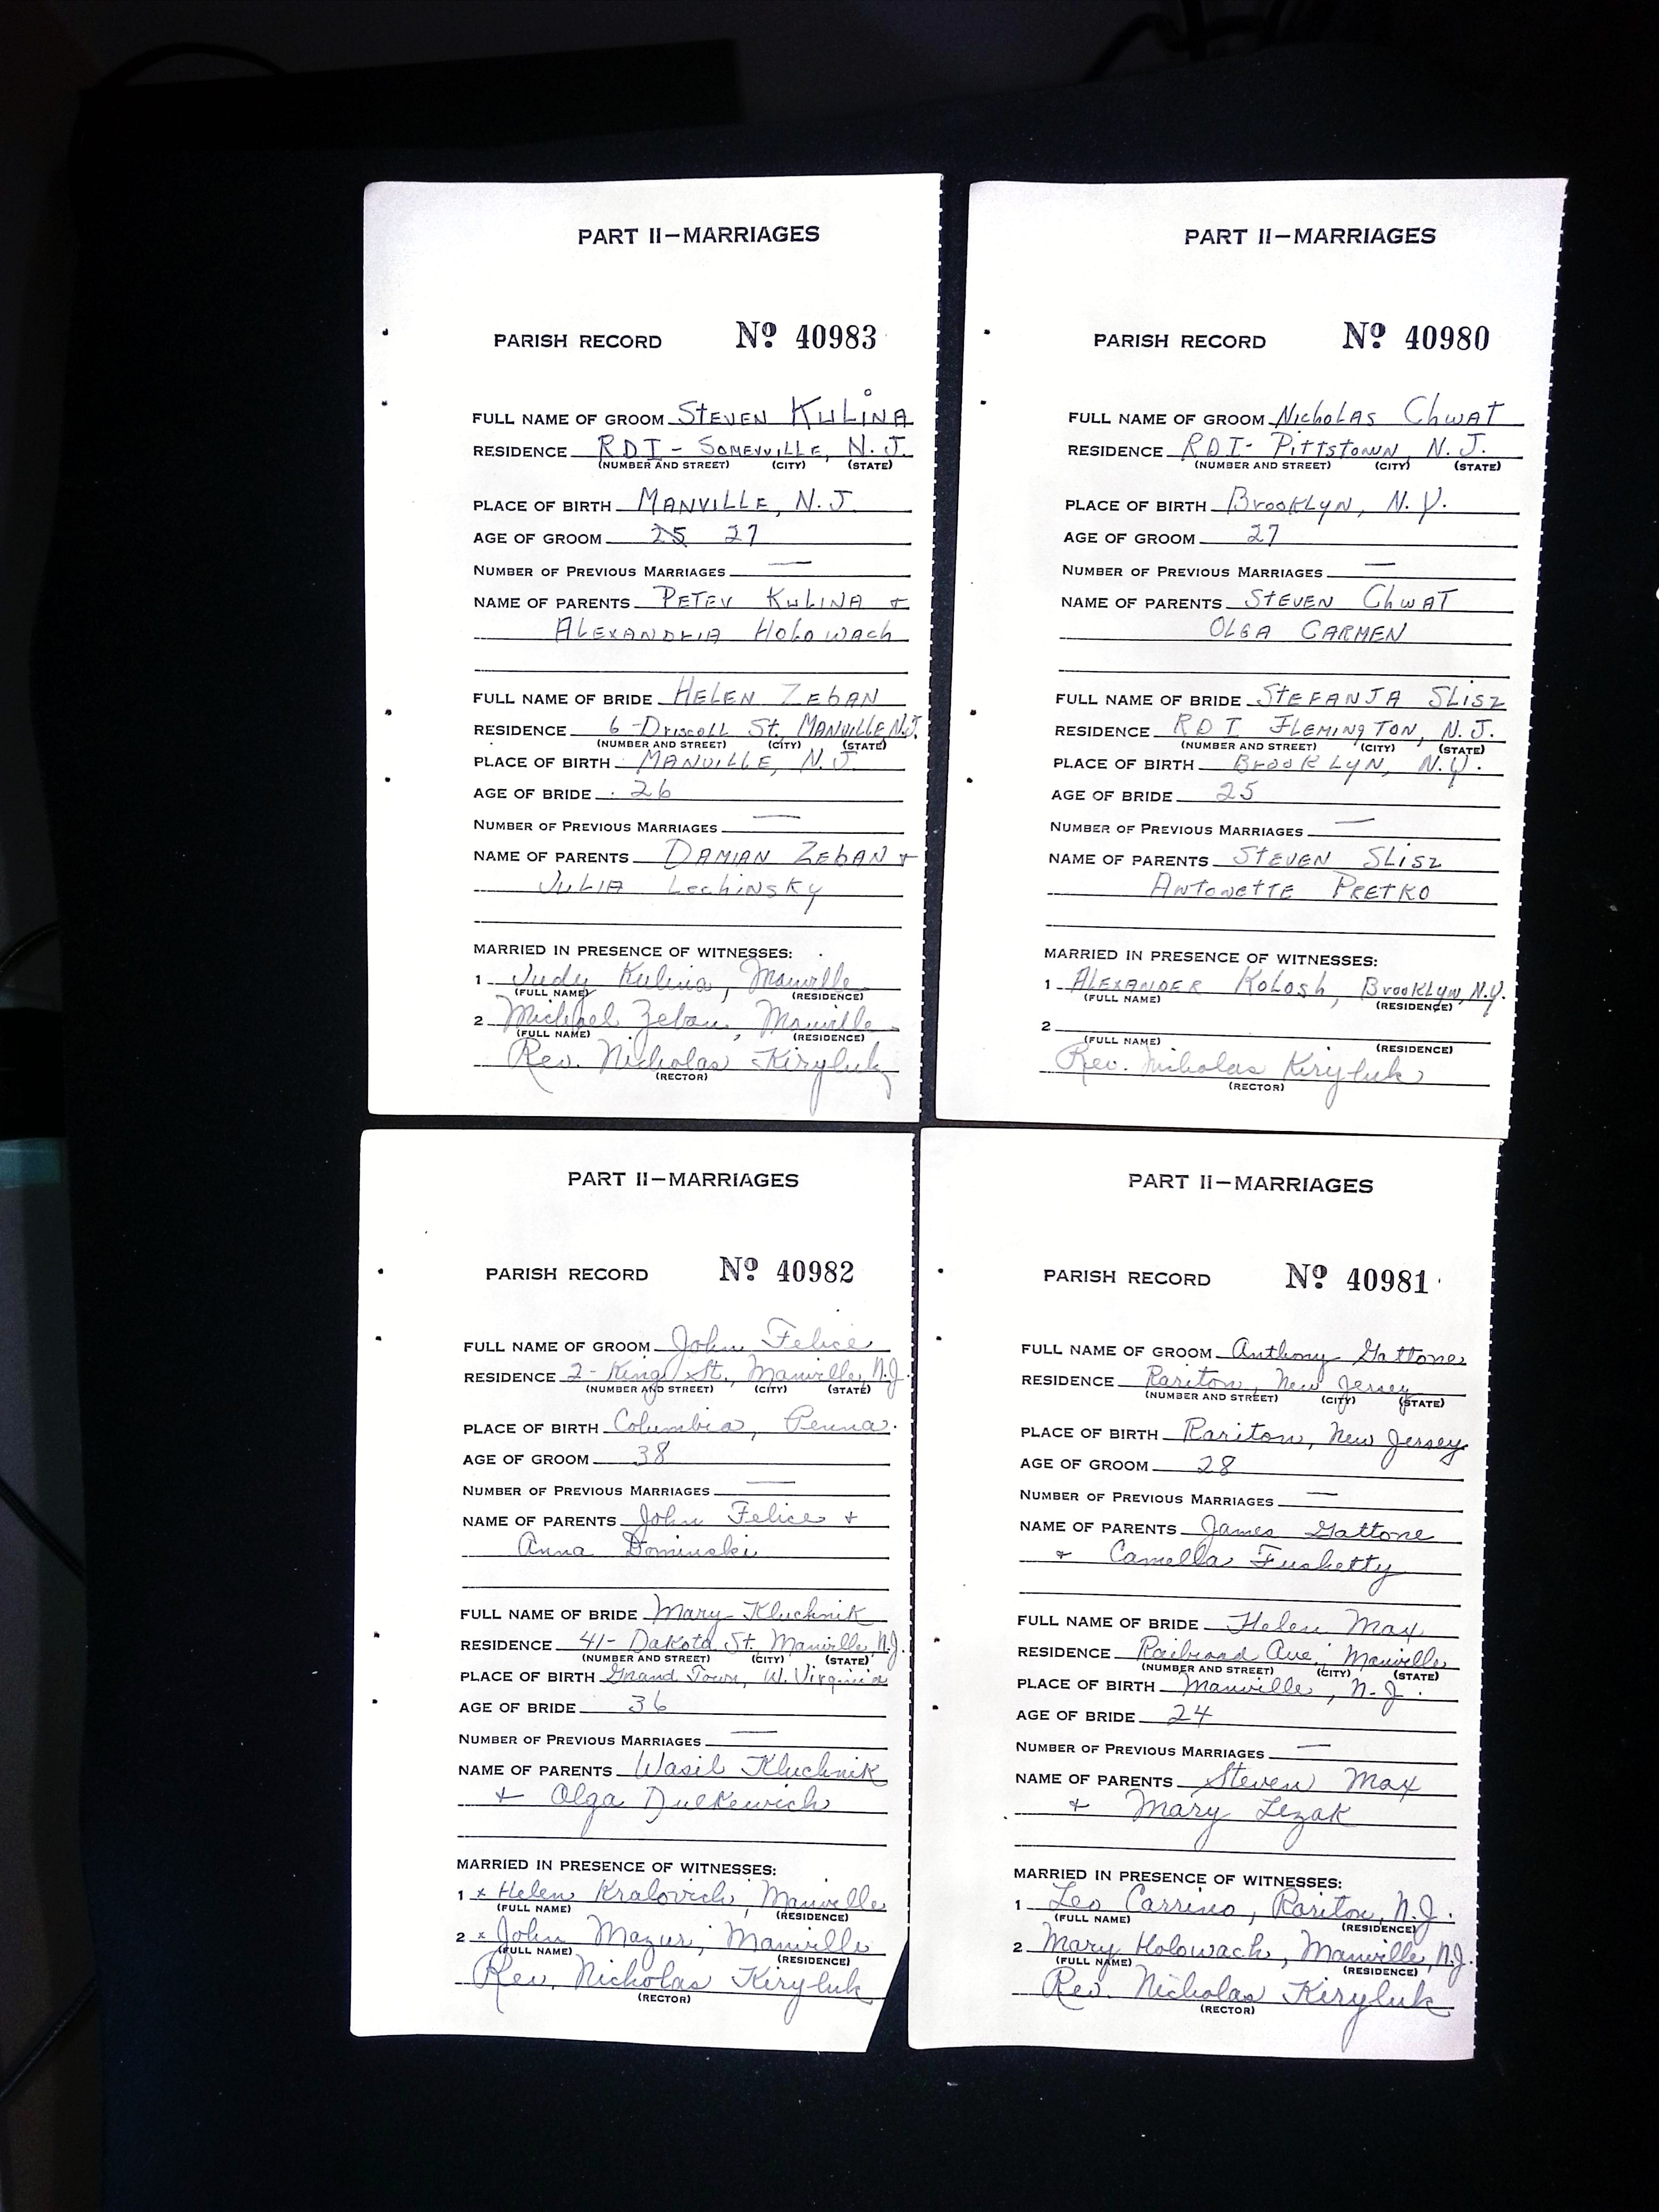 PART II—MARRIAGES
PARISH RECORD Nº 40983
FULL NAME OF GROOM STEVEN KULINA
RESIDENCE RDI - SOMEVVILLE, N. J.
(NUMBER AND STREET) (CITY) (STATE)
PLACE OF BIRTH MANVILLE, N.J.
AGE OF GROOM 25 27
NUMBER OF PREVIOUS MARRIAGES —
NAME OF PARENTS PETEV KULINA +
ALEXANDRIA HOLOWACH
FULL NAME OF BRIDE HELEN ZEBAN
RESIDENCE 6-Driscoll St., MANVILLE N.J.
(NUMBER AND STREET) (CITY) (STATE)
PLACE OF BIRTH MANVILLE, N.J.
AGE OF BRIDE 26
NUMBER OF PREVIOUS MARRIAGES —
NAME OF PARENTS DAMIAN ZEBAN +
JULIA LechiNSKY
MARRIED IN PRESENCE OF WITNESSES:
1 Judy Kulina, Manville
(FULL NAME) (RESIDENCE)
2 Michael Zeban, Manville
(FULL NAME) (RESIDENCE)
Rev. Nicholas Kiryluk
(RECTOR)
PART II—MARRIAGES
PARISH RECORD Nº 40980
FULL NAME OF GROOM Nicholas Chwat
RESIDENCE RDI - Pittstown, N. J.
(NUMBER AND STREET) (CITY) (STATE)
PLACE OF BIRTH Brooklyn, N.Y.
AGE OF GROOM 27
NUMBER OF PREVIOUS MARRIAGES —
NAME OF PARENTS STEVEN Chwat
OLGA CARMEN
FULL NAME OF BRIDE STEFANJA SLisz
RESIDENCE RDI FLEMINGTON, N.J.
(NUMBER AND STREET) (CITY) (STATE)
PLACE OF BIRTH BrooKLyN, N.Y.
AGE OF BRIDE 25
NUMBER OF PREVIOUS MARRIAGES —
NAME OF PARENTS STEVEN SLisz
ANTONETTE PRETKO
MARRIED IN PRESENCE OF WITNESSES:
1 ALEXANDER Kolosh, Brooklyn, N.Y.
(FULL NAME) (RESIDENCE)
2
(FULL NAME) (RESIDENCE)
Rev. Nicholas Kiryluk
(RECTOR)
PART II—MARRIAGES
PARISH RECORD Nº 40982
FULL NAME OF GROOM John Felice
RESIDENCE 2-King St., Manville, N.J.
(NUMBER AND STREET) (CITY) (STATE)
PLACE OF BIRTH Columbia, Penna.
AGE OF GROOM 38
NUMBER OF PREVIOUS MARRIAGES —
NAME OF PARENTS John Felice +
Anna Dominski
FULL NAME OF BRIDE Mary Kluchnik
RESIDENCE 41-Dakota St. Manville, N.J.
(NUMBER AND STREET) (CITY) (STATE)
PLACE OF BIRTH Grand Town, W. Virginia
AGE OF BRIDE 36
NUMBER OF PREVIOUS MARRIAGES —
NAME OF PARENTS Wasil Kluchnik
+ Olga Dulkewich
MARRIED IN PRESENCE OF WITNESSES:
1 x Helen Kralovich, Manville
(FULL NAME) (RESIDENCE)
2 x John Mazur, Manville
(FULL NAME) (RESIDENCE)
Rev. Nicholas Kiryluk
(RECTOR)
PART II—MARRIAGES
PARISH RECORD Nº 40981
FULL NAME OF GROOM Anthony Gattone
RESIDENCE Rariton, New Jersey
(NUMBER AND STREET) (CITY) (STATE)
PLACE OF BIRTH Rariton, New Jersey
AGE OF GROOM 28
NUMBER OF PREVIOUS MARRIAGES —
NAME OF PARENTS James Gattone
+ Camella Fushetty
FULL NAME OF BRIDE Helen Max
RESIDENCE Railroad Ave, Manville
(NUMBER AND STREET) (CITY) (STATE)
PLACE OF BIRTH Manville, N.J.
AGE OF BRIDE 24
NUMBER OF PREVIOUS MARRIAGES —
NAME OF PARENTS Steven Max
+ Mary Lezak
MARRIED IN PRESENCE OF WITNESSES:
1 Leo Carrino, Rariton, N.J.
(FULL NAME) (RESIDENCE)
2 Mary Holowach, Manville, N.J.
(FULL NAME) (RESIDENCE)
Rev. Nicholas Kiryluk
(RECTOR)